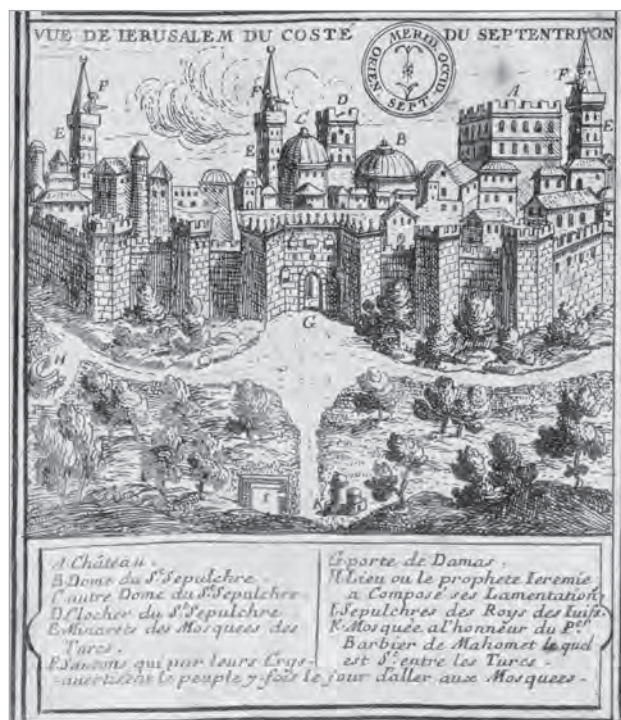 VUE DE IERUSALEM DU COSTÉ DU SEPTENTRION
ORIEN. MERID. OCCID. SEPT.
F
F
F
A
D
C
B
E
E
E
G
H
I
K
A Château.
B Dome du St. Sepulchre.
C autre Dome du St. Sepulchre
D Clocher du St. Sepulchre
E Minarets des Mosquees des
Turcs.
F Santons qui par leurs Crys
avertissent le peuple 7 fois le jour d'aller aux Mosquees.
G porte de Damas.
H Lieu ou le prophete Ieremie
a Composé ses Lamentations
I Sepulchres des Roys des Iuifs.
K Mosquée a l'honneur du Per.
Barbier de Mahomet le quel
est St. entre les Turcs.